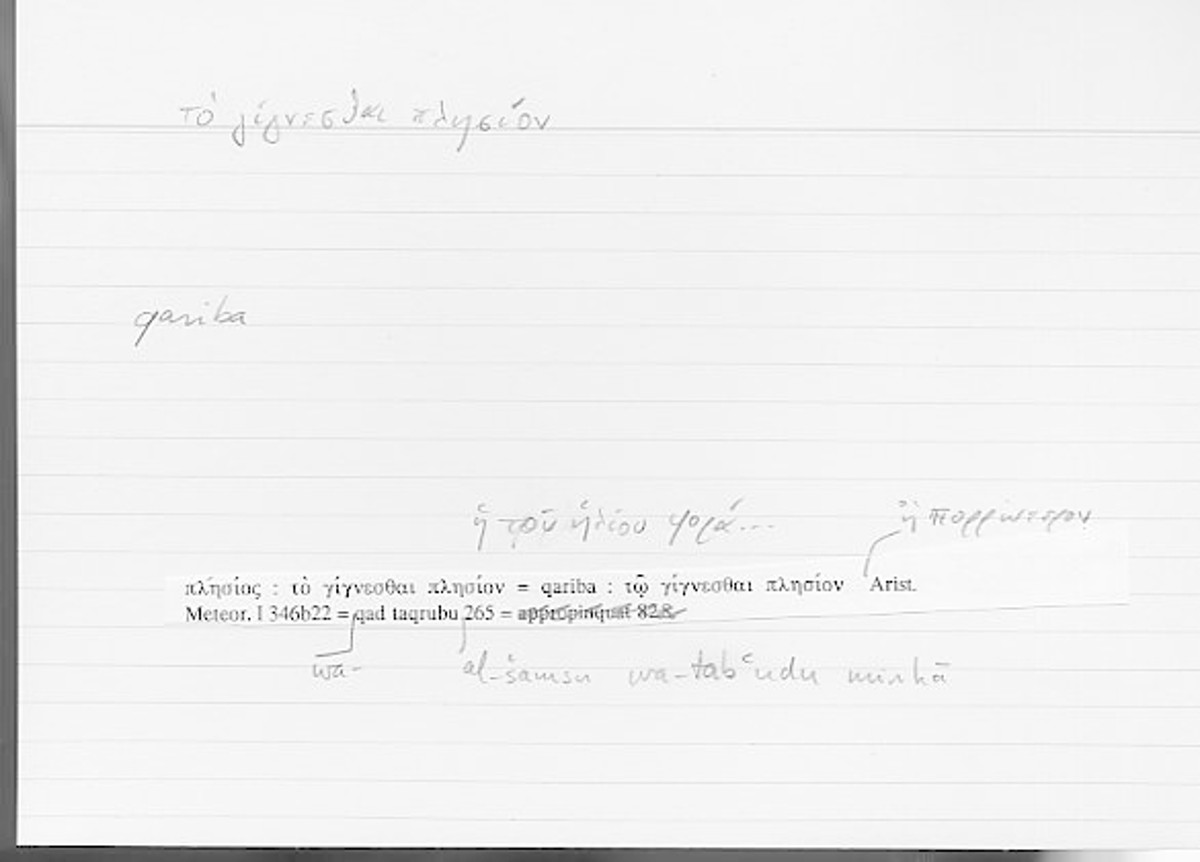 τὸ γίγνεσθαι πλησίον
qariba
ἡ τοῦ ἡλίου φορά... ἢ πορρώτερον
πλησίος : τὸ γίγνεσθαι πλησίον = qariba : τῷ γίγνεσθαι πλησίον Arist.
Meteor. I 346b22 = qad taqrubu 265 = appropinquat 828
wa- al-šamsu wa-tabʿudu minhā